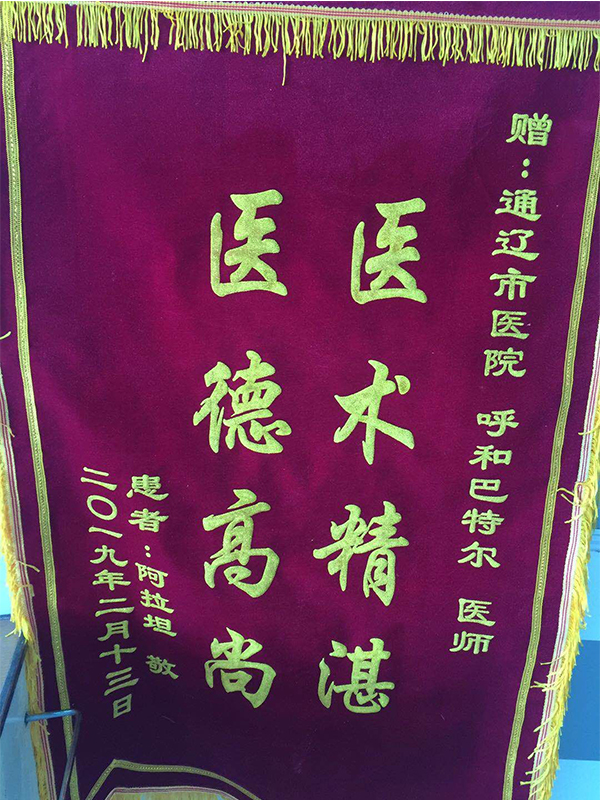 赠：通辽市医院 呼和巴特尔 医师
医术精湛
医德高尚
患者：阿拉坦 敬
二〇一九年二月十三日